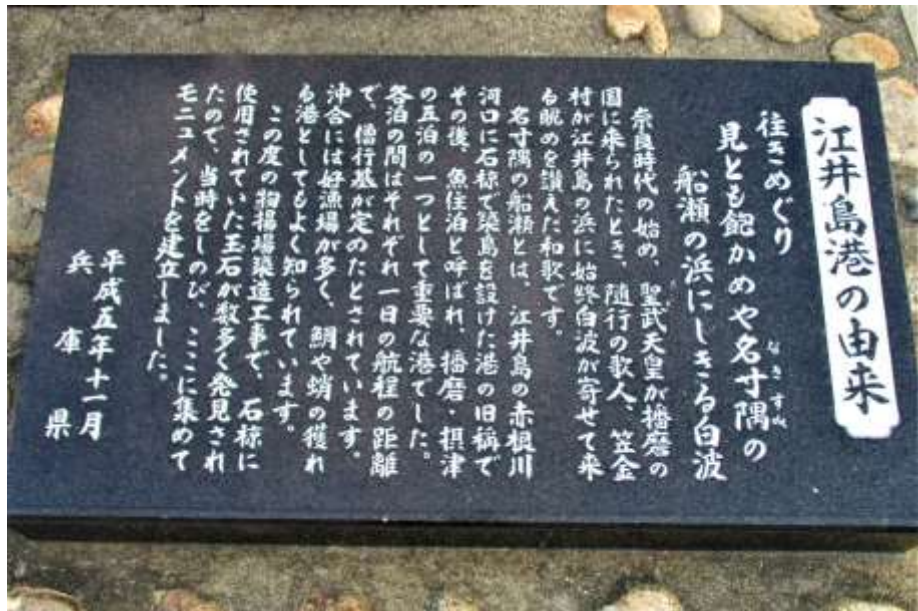 江井島港の由来
往きめぐり
見とも飽かめや名寸隅の
船瀬の浜にしきる白波
奈良時代の始め、聖武天皇が播磨の
国に来られたとき、随行の歌人、笠金
村が江井島の浜に始終白波が寄せて来
る眺めを讃えた和歌です。
名寸隅の船瀬とは、江井島の赤根川
河口に石椋で築島を設けた港の旧称で
その後、魚住泊と呼ばれ、播磨・摂津
の五泊の一つとして重要な港でした。
各泊の間はそれぞれ一日の航程の距離
で、僧行基が定めたとされています。
沖合には好漁場が多く、鯛や蛸の獲れ
る港としてもよく知られています。
この度の物揚場築造工事で、石椋に
使用されていた玉石が数多く発見され
たので、当時をしのび、ここに集めて
モニュメントを建立しました。
平成五年十一月
兵庫県